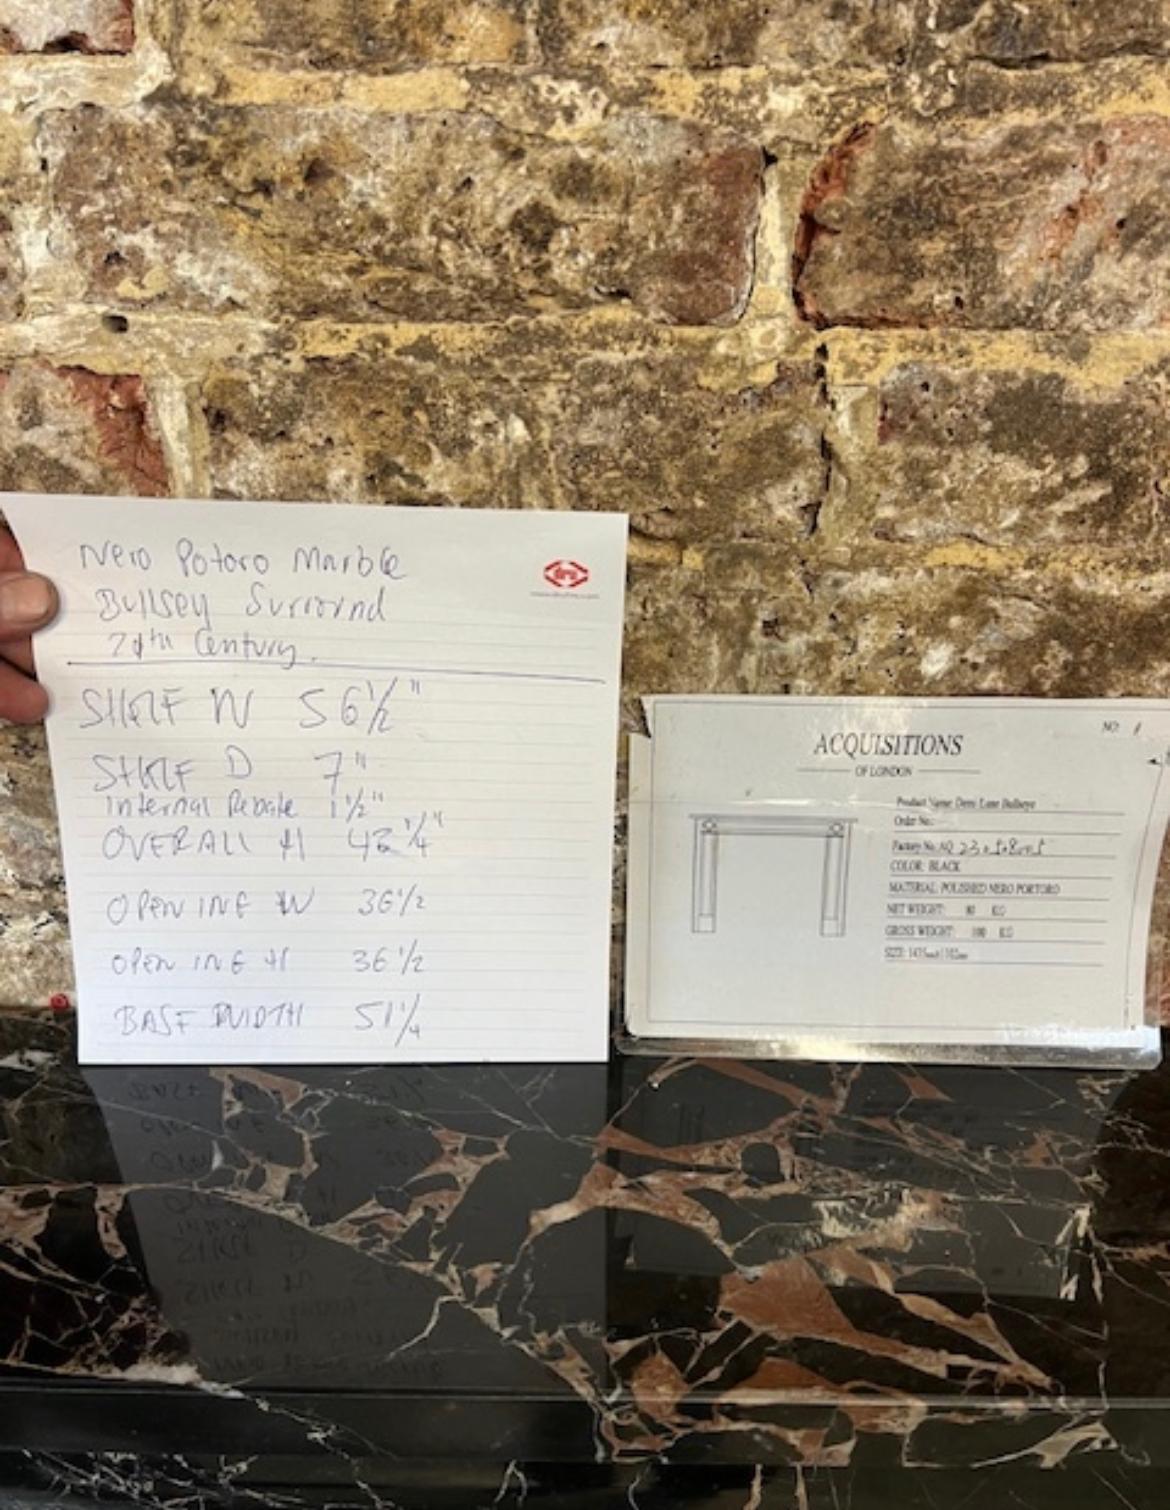 Nero Potoro Marble
Bullsey Surround
20th Century.
SHELF W 56 1/2"
SHELF D 7"
Internal Rebate 1 1/2"
OVERALL H 42 1/4"
OPENING W 36 1/2
OPENING H 36 1/2
BASE WIDTH 51 1/4
NO: 1
ACQUISITIONS
OF LONDON
Product Name: Demi Lane Bullseye
Order No.:
Factory No. AQ
COLOR: BLACK
MATERIAL: POLISHED NERO PORTORO
NET WEIGHT: 80 KG
GROSS WEIGHT: 100 KG
SIZE: